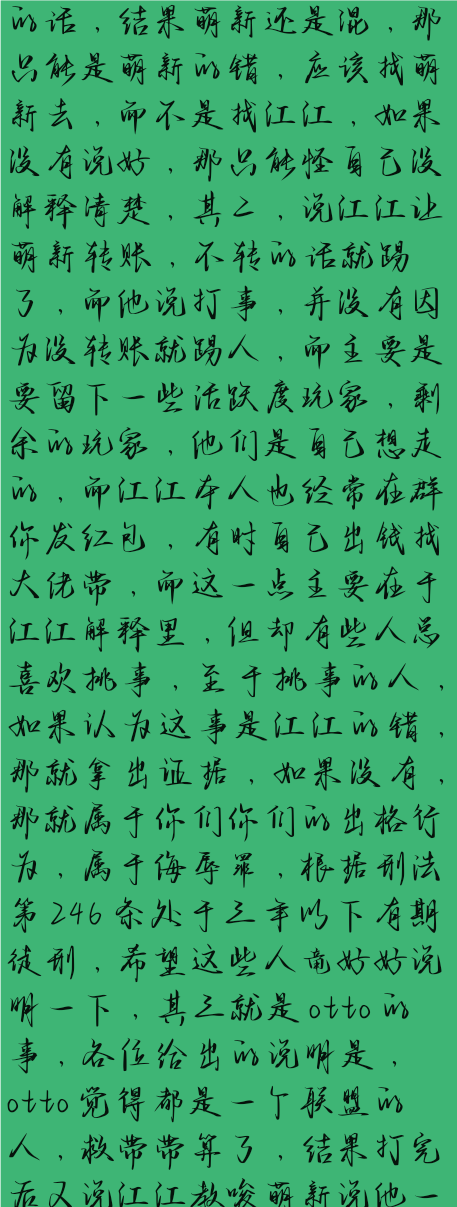 的话，结果萌新还是混，那
只能是萌新的错，应该找萌
新去，而不是找江江，如果
没有说好，那只能怪自己没
解释清楚，其二，说江江让
萌新转账，不转的话就踢
了，而他说打事，并没有因
为没转账就踢人，而主要是
要留下一些活跃度玩家，剩
余的玩家，他们是自己想走
的，而江江本人也经常在群
你发红包，有时自己出钱找
大佬带，而这一点主要在于
江江解释里，但却有些人总
喜欢挑事，至于挑事的人，
如果认为这事是江江的错，
那就拿出证据，如果没有，
那就属于你们你们的出格行
为，属于侮辱罪，根据刑法
第246条处于三年以下有期
徒刑，希望这些人竟好好说
明一下，其三就是otto的
事，各位给出的说明是，
otto觉得都是一个联盟的
人，救带带算了，结果打完
后又说江江教唆萌新说他一